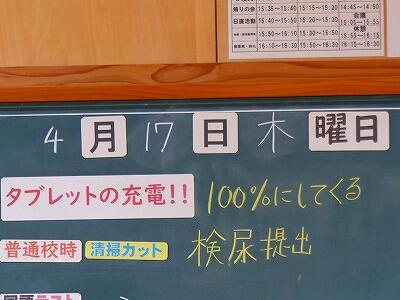 帰りの会 15:35～15:40 15:20～15:30 14:45～14:50
日直活動 15:40～15:50 15:30～15:40 会議
15:55～16:15
休憩
16:10～16:30 16:10～16:30 16:15～16:33
4 月 17 日 木 曜日
タブレットの充電!! 100%にしてくる
普通校時 清掃カット 検尿提出
テスト